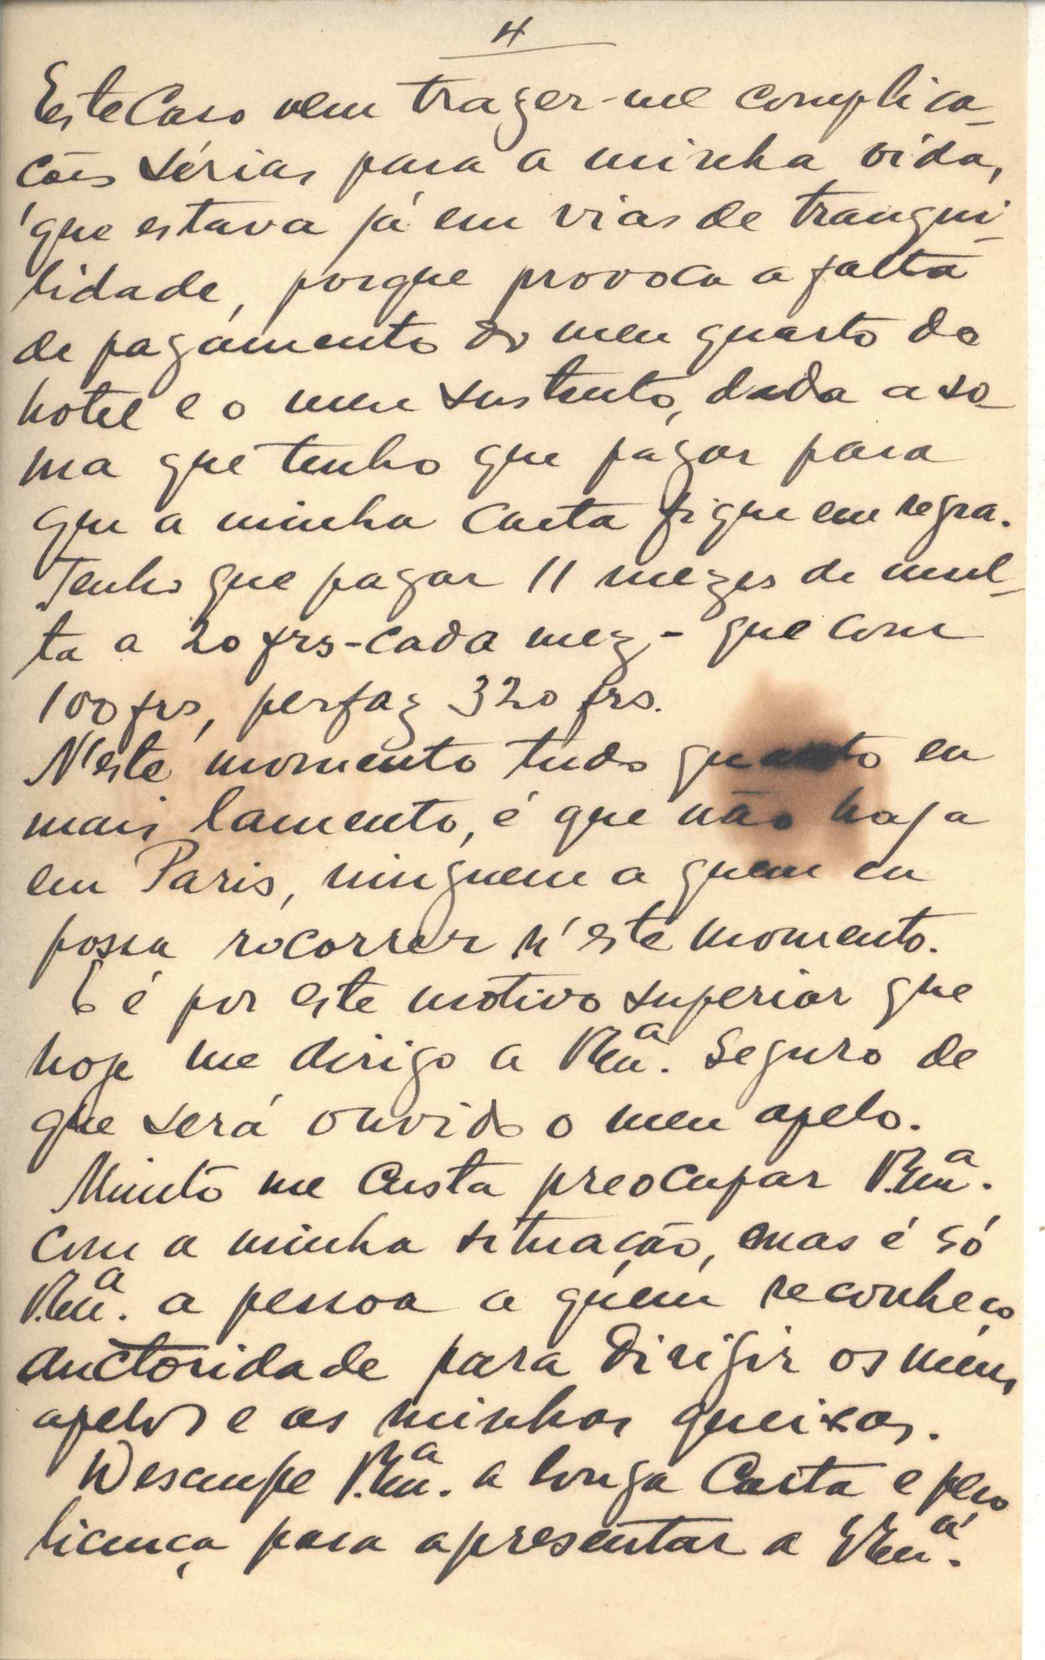 4
Este Caso vem trazer-me complica-
cões sérias para a minha vida,
que estava já em vias de tranqui-
lidade, porque provoca a falta
de pagamento do meu quarto do
hotel e o meu sustento, dada a so-
ma que tenho que pagar para
que a minha carta fique em regra.
Tenho que pagar 11 mezes de mul-
ta a 20 frs-cada mez,- que com
100 frs, perfaz 320 frs.
N'este momento tudo quanto eu
mais lamento, é que não haja
em Paris, ninguem a quem eu
possa recorrer n'este momento.
E é por este motivo superior que
hoje me dirigo a V.Exª. Seguro de
que será ouvido o meu apelo.
Muito me custa preocupar V.Exª.
com a minha situação, mas é só
V.Exª. a pessoa a quem reconheço
auctoridade para dirigir os meus
apelos e as minhas queixas.
Desculpe V.Exª. a longa Carta e peço
licença para apresentar a V.Exª.